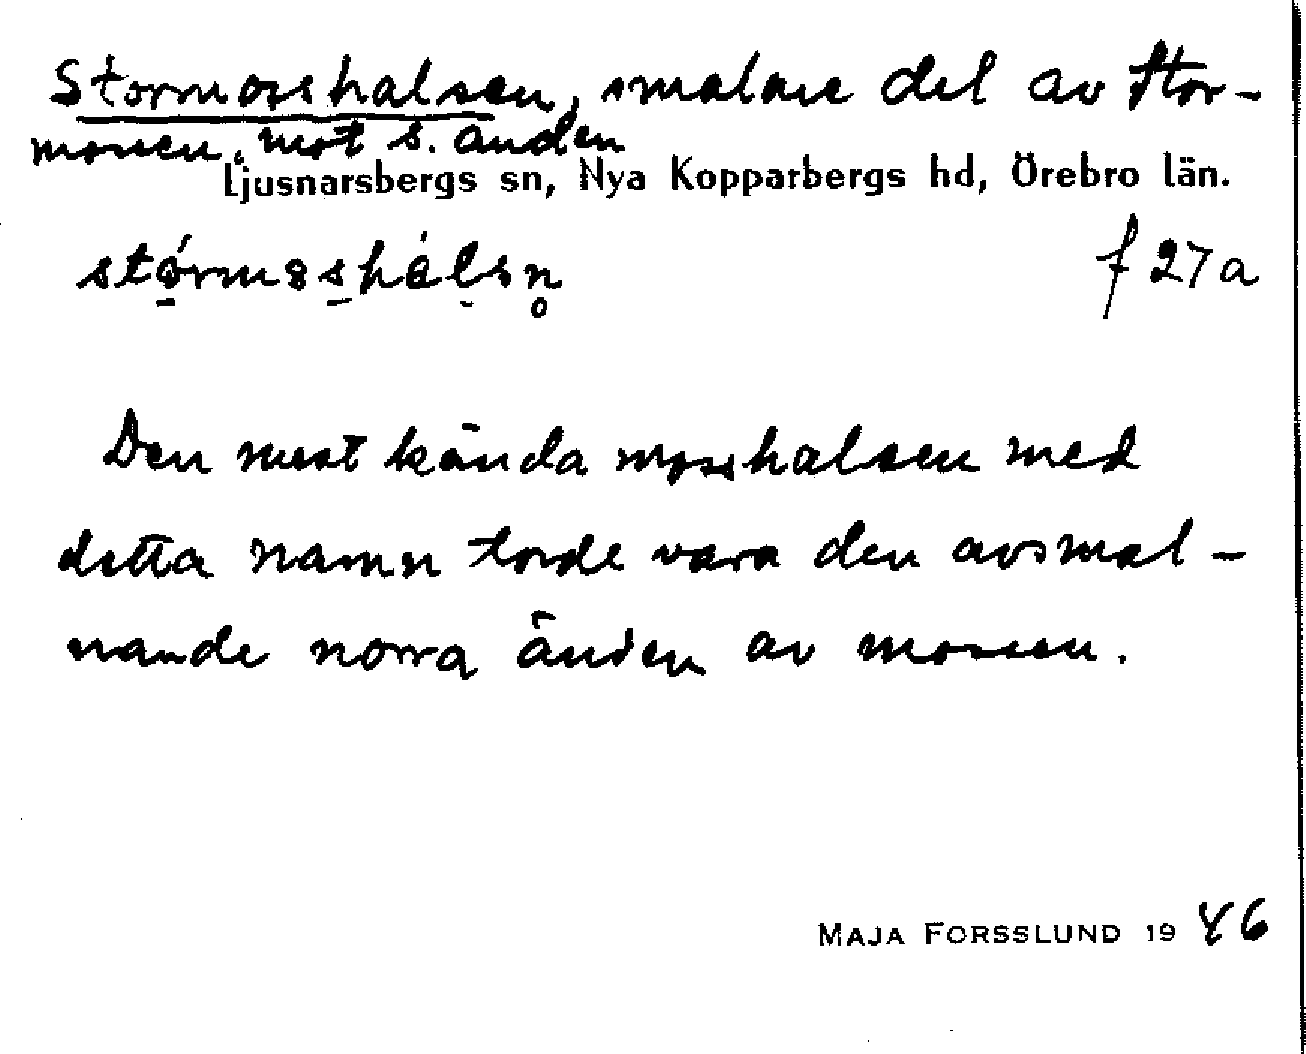 Stormosshalsen, smalare del av Stor-
mossen, mot s. änden
Ljusnarsbergs sn, Nya Kopparbergs hd, Örebro län.
f 27a
Den mest kända mosshalsen med
detta namn torde vara den avsmal-
nande norra änden av mossen.
MAJA FORSSLUND 19 46